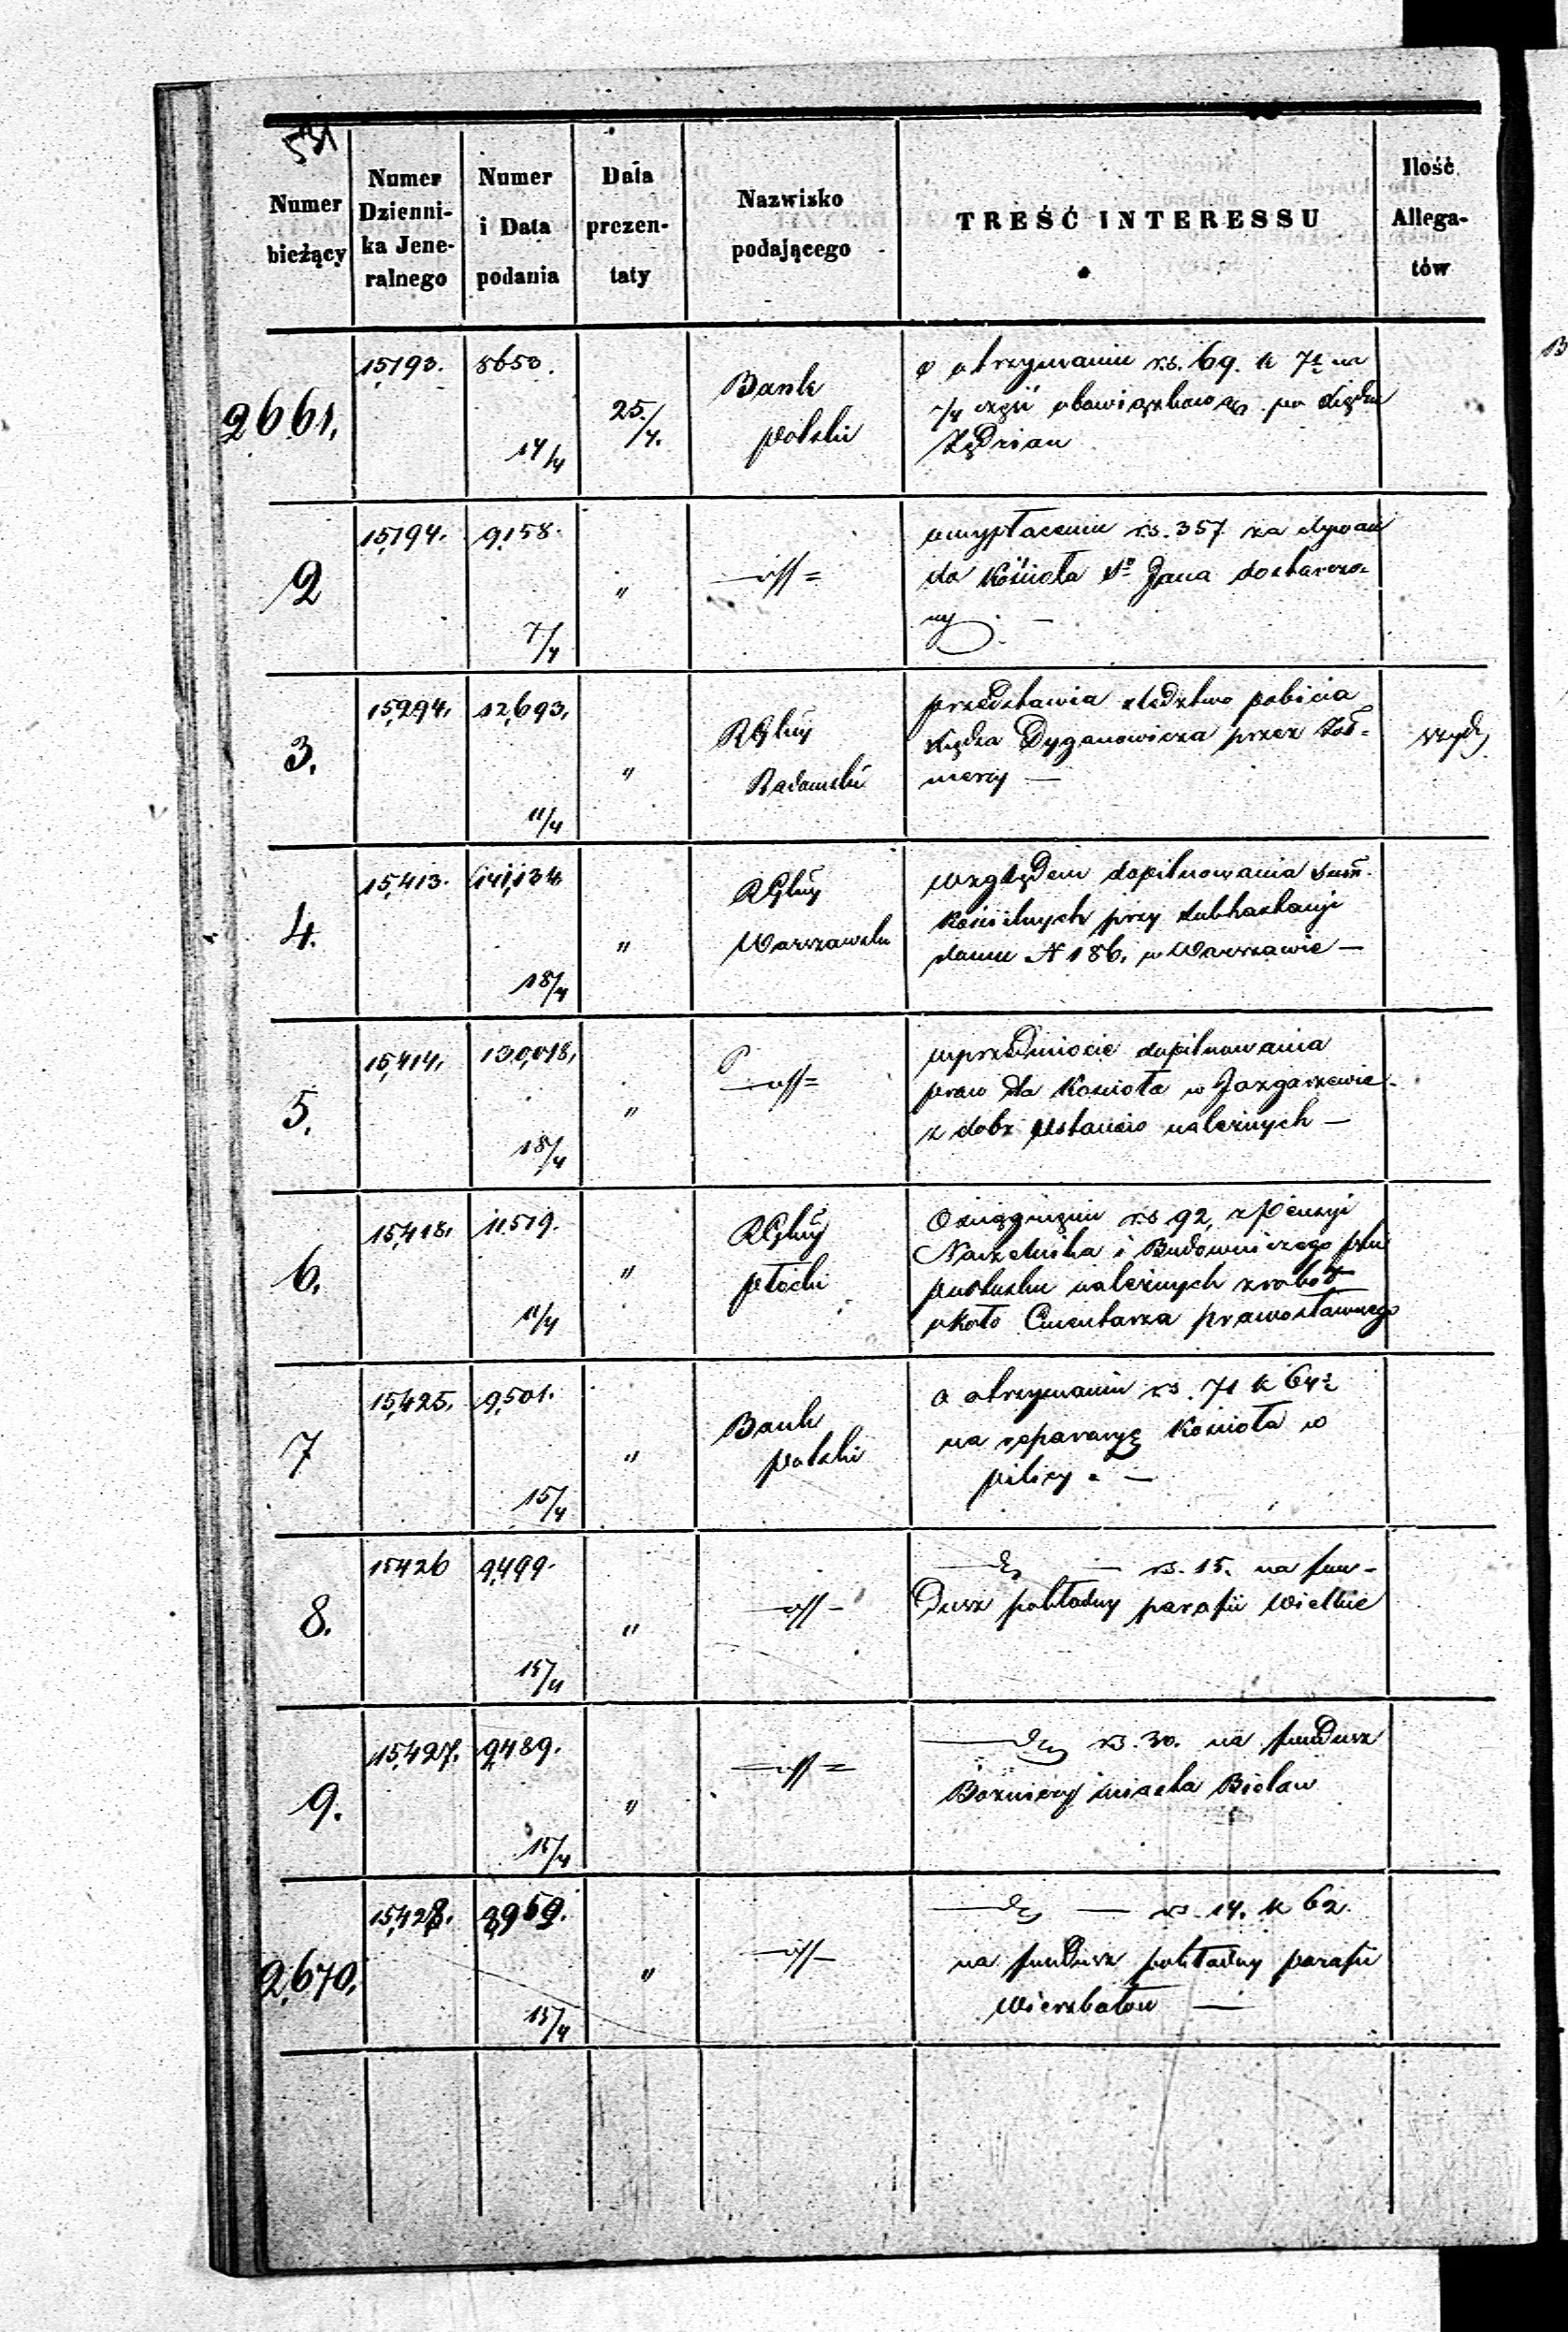 Numer bieżący
Numer Dziennika Jeneralnego
Numer i Data podania
Data prezentaty
Nazwisko podającego
TREŚĆ INTERESSU
Ilość Allegatów
2661. 15,193. 8653. 14/4 25./4. Bank polski
o otrzymaniu rs. 69. k 7½ na
¼ część obowiązkową po Księdzu
2 15,194. 9,158. 7/4 "
o wypłacenie rs. 357 za dywan
do Kościoła Sº Jana dostarczo-
ny. —
3. 15,294. 12,693. 11/4 " RGlny Radomski
przedstawia śledztwo pobicia
Księdza Dyganowicza przez Żoł-
nierzy —
4. 15,413. 141,134 18/4 " RGlny Warszawski
względem dopilnowania sum̄
Kościelnych przy subhastacyi
domu N 186. w Warszawie —
5. 15,414. 130,018. 18/4 "
w przedmiocie dopilnowania
praw dla Kościoła w Jazgarzewie
z dobr należnych —
6. 15,418. 11519. 11/4 " RGlny płocki
O ściągnięciu rs 92, z pensyi
Naczelnika i Budowniczego
należnych z robót
około Cmentarza prawosławnego
7 15,425. 9,501. 15/4 " Bank polski
o otrzymaniu rs. 71 k 64½
na reparacyę Kościoła w
pilicy. —
8. 15426 9,499. 15/4 "
— rs. 15. na fun-
dusz pokładny parafii Wielkie
9. 15,427. 9,489. 15/4 "
rs. 30. na fundusz
Bożnicy miasta Bielaw
2,670. 15,428. 8,959. 15/4 "
— rs. 14. k 62.
na fundusz pokładny parafii
Wierzbołow —